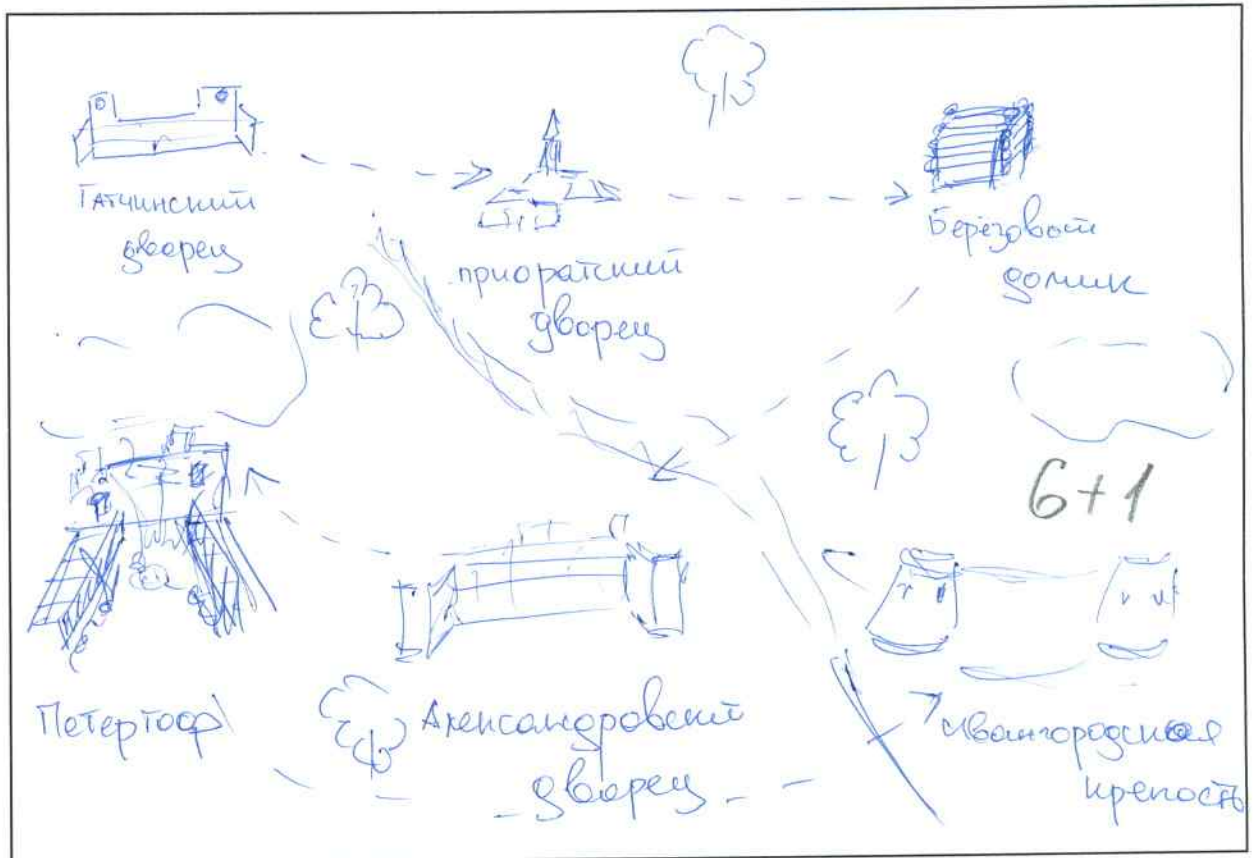 Гатчинский
дворец
приоратский
дворец
Берёзовый
домик
6+1
Петергоф
Александровский
дворец
Ивангородская
крепость